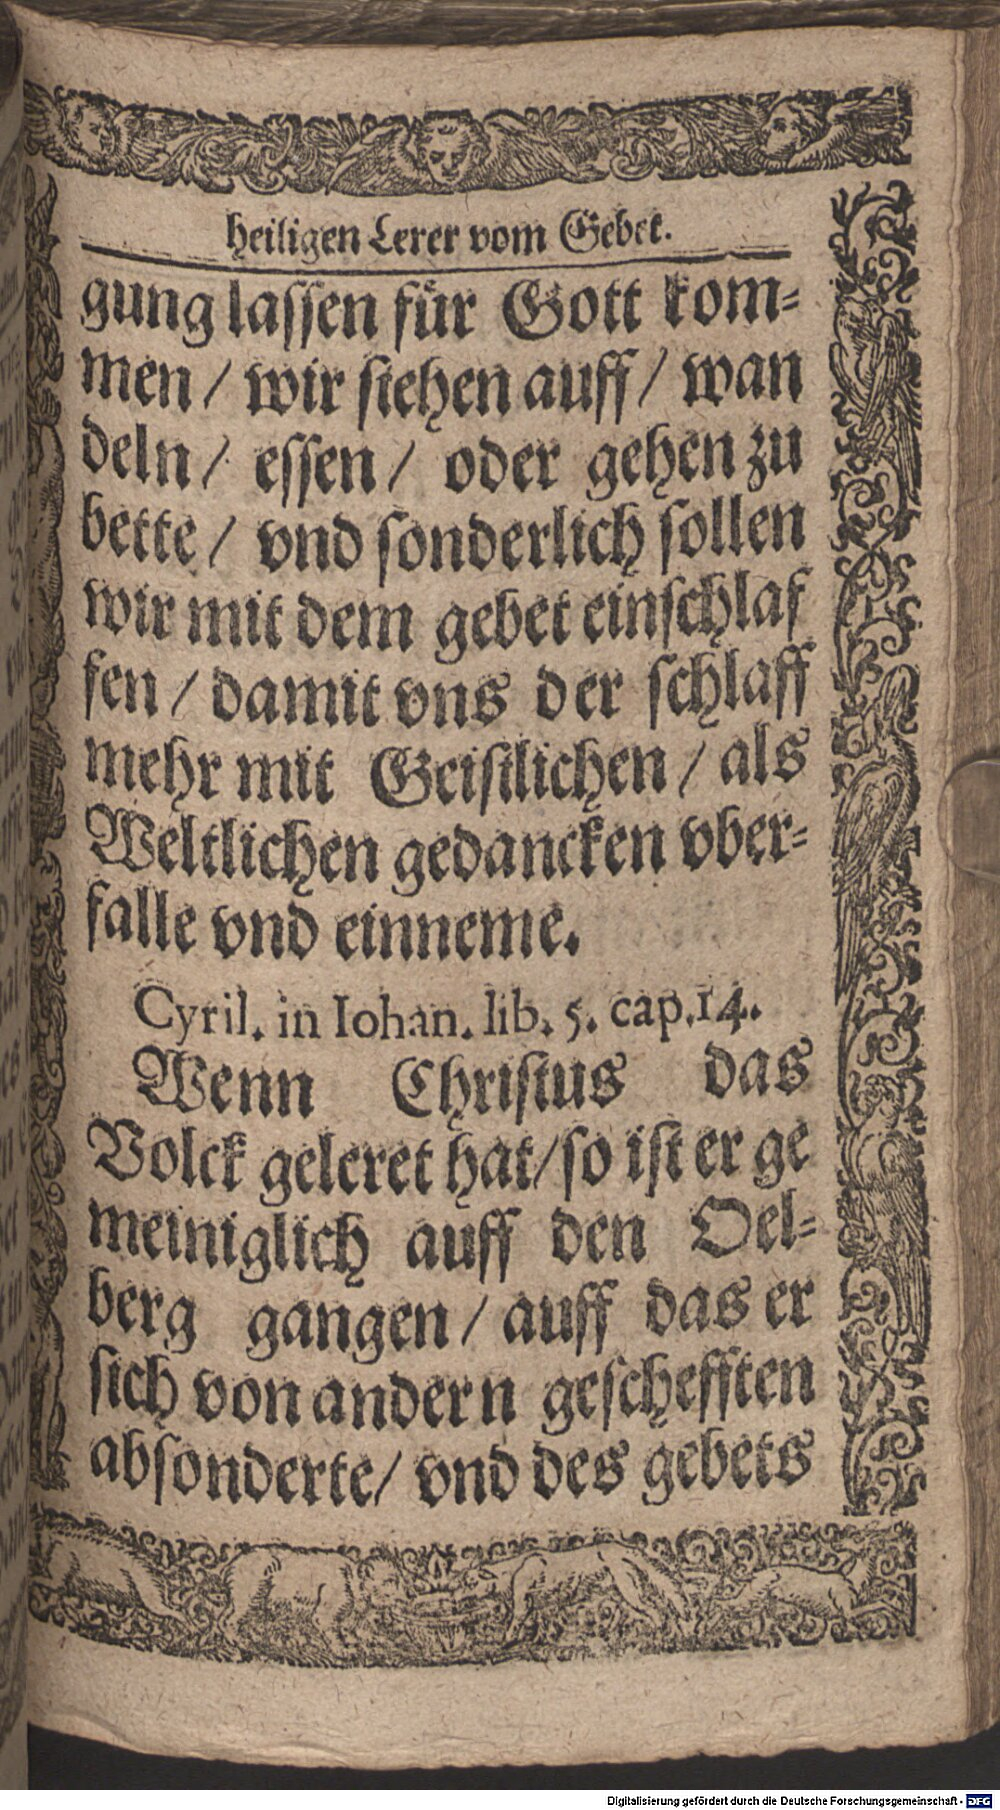 heiligen Lerer vom Gebet.
gung lassen für Gott kom=
men / wir stehen auff / wan
deln / essen / oder gehen zu
bette / vnd sonderlich sollen
wir mit dem gebet einschlaf
fen / damit vns der schlaff
mehr mit Geistlichen / als
Weltlichen gedancken vber=
falle vnd einneme.
Cyril. in Iohan. lib. 5. cap. 14.
Wenn Christus das
Volck geleret hat / so ist er ge
meiniglich auff den Oel=
berg gangen / auff das er
sich von andern geschefften
absonderte / vnd des gebets
Digitalisierung gefördert durch die Deutsche Forschungsgemeinschaft - DFG